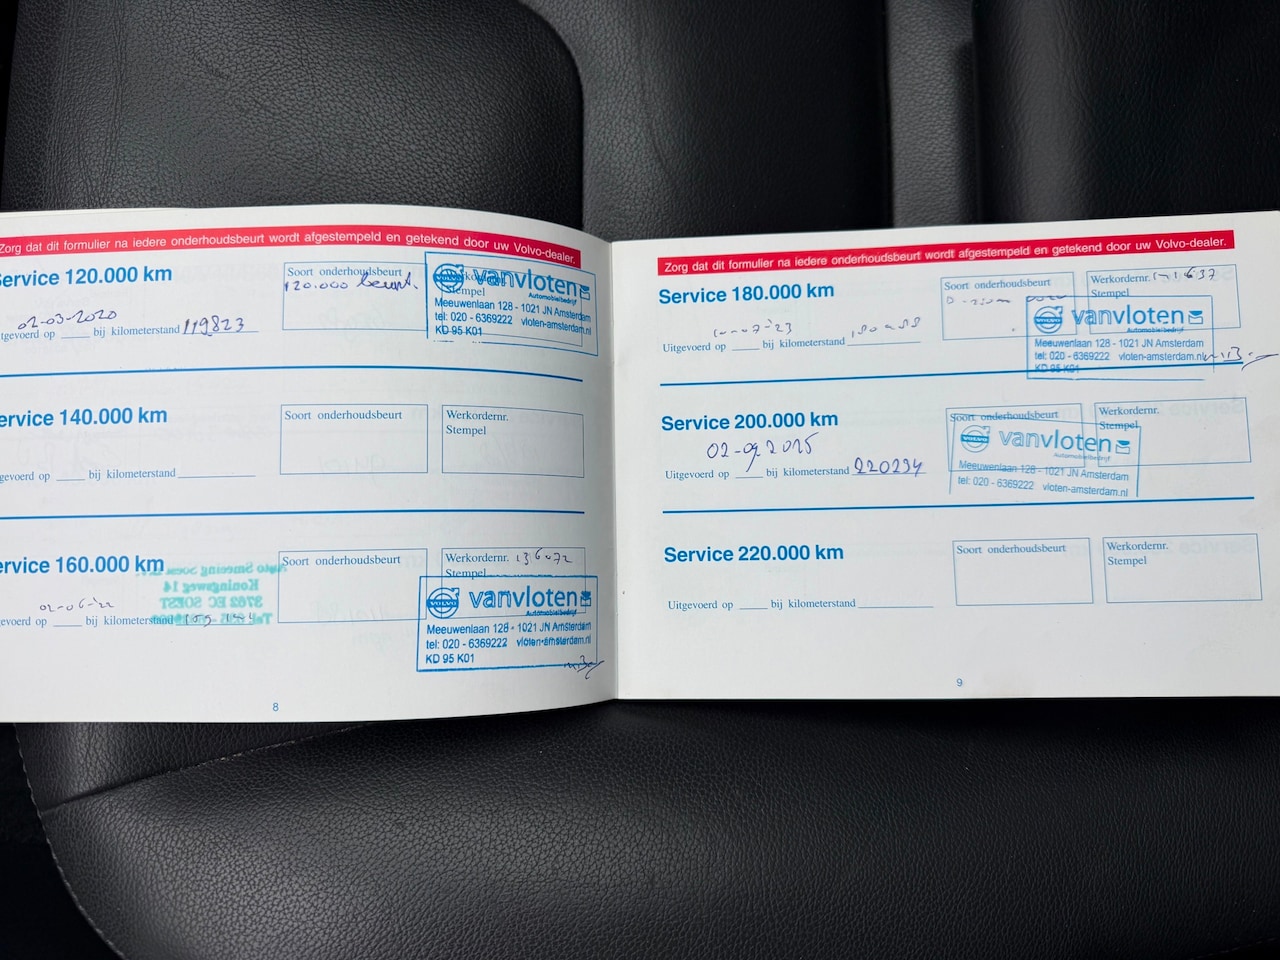 Zorg dat dit formulier na iedere onderhoudsbeurt wordt afgestempeld en getekend door uw Volvo-dealer.
Service 120.000 km
Soort onderhoudsbeurt
120.000 beurt.
vanvloten
Automobielbedrijf
Stempel
Meeuwenlaan 128 - 1021 JN Amsterdam
tel: 020 - 6369222 vloten-amsterdam.nl
KD 95 K01
02-03-2020
itgevoerd op bij kilometerstand 119823
ervice 140.000 km
Soort onderhoudsbeurt
Werkordernr.
Stempel
gevoerd op bij kilometerstand
ervice 160.000 km
Soort onderhoudsbeurt
Werkordernr.
Stempel
Auto Smeeing Soest
Koningsweg 14
3762 EC SOEST
02-06-'22
gevoerd op bij kilometerstand
VOLVO
vanvloten
Automobielbedrijf
Meeuwenlaan 128 - 1021 JN Amsterdam
tel: 020 - 6369222 vloten-amsterdam.nl
KD 95 K01
8
Zorg dat dit formulier na iedere onderhoudsbeurt wordt afgestempeld en getekend door uw Volvo-dealer.
Service 180.000 km
Soort onderhoudsbeurt
Werkordernr.
Stempel
Uitgevoerd op bij kilometerstand
VOLVO
vanvloten
Automobielbedrijf
Meeuwenlaan 128 - 1021 JN Amsterdam
tel: 020 - 6369222 vloten-amsterdam.nl
KD 95 K01
Service 200.000 km
Soort onderhoudsbeurt
Werkordernr.
Stempel
Uitgevoerd op bij kilometerstand 220234
VOLVO
vanvloten
Automobielbedrijf
Meeuwenlaan 128 - 1021 JN Amsterdam
tel: 020 - 6369222 vloten-amsterdam.nl
Service 220.000 km
Soort onderhoudsbeurt
Werkordernr.
Stempel
Uitgevoerd op bij kilometerstand
9